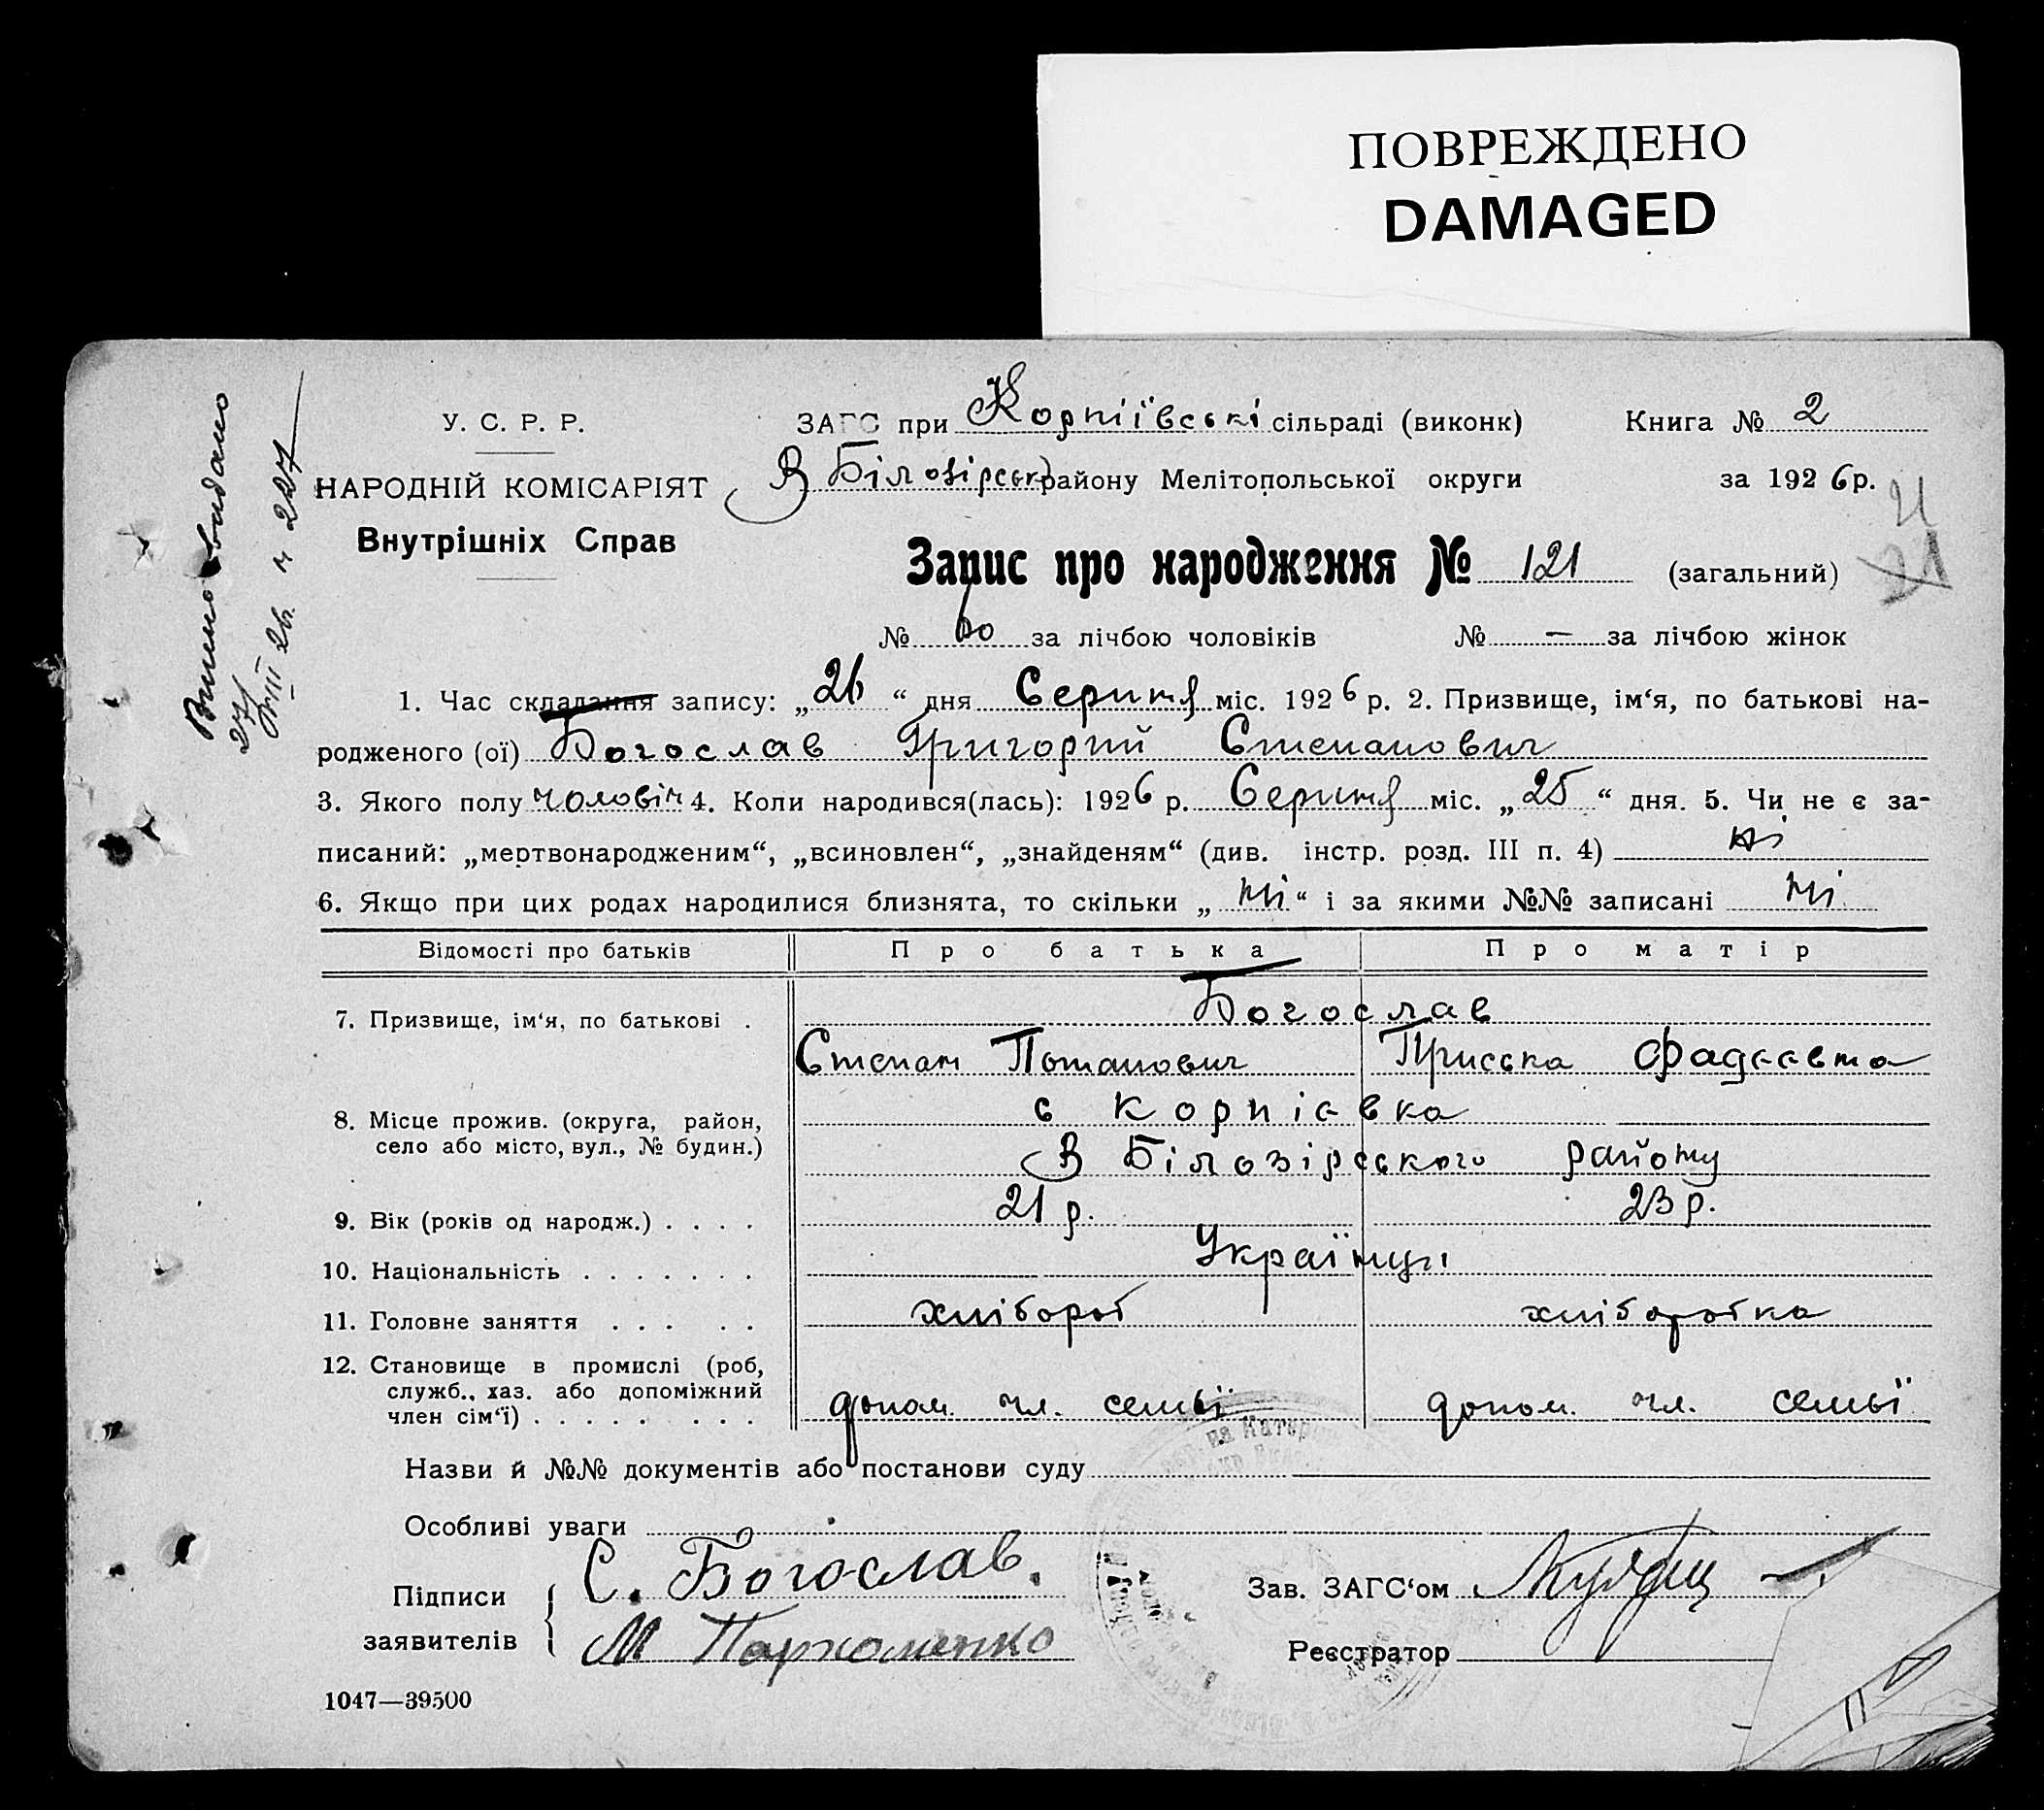 ПОВРЕЖДЕНО
DAMAGED
Витяг видано
27/VIII 26. № 227
У. С. Р. Р.
НАРОДНІЙ КОМІСАРІЯТ
Внутрішніх Справ
ЗАГС при Корніївські сільраді (виконк)
В Білозірськ району Мелітопольської округи
Книга № 2
за 1926 р.
21
Запис про народження № 121 (загальний)
№ 60 за лічбою чоловіків № — за лічбою жінок
1. Час складання запису: „26“ дня Серпня міс. 1926 р. 2. Призвище, ім‘я, по батькові на-
родженого (ої) Богослав Григорий Степанович
3. Якого полу чоловіч 4. Коли народився(лась): 1926 р. Серпня міс. „25“ дня. 5. Чи не є за-
писаний: „мертвонародженим“, „всиновлен“, „знайденям“ (див. інстр. розд. III п. 4) ні
6. Якщо при цих родах народилися близнята, то скільки „ні“ і за якими №№ записані ні
Відомості про батьків Про батька Про матір
7. Призвище, ім‘я, по батькові . Богослав
Степан Потапович Приська Фадеевна
8. Місце прожив. (округа, район, с Корнієвка
село або місто, вул., № будин.) В Білозірського району
9. Вік (років од народж.) . . . . 21 р. 23 р.
10. Національність . . . . . . . Українці
11. Головне заняття . . . . . хлібороб хлiборобка
12. Становище в промислі (роб,
служб., хаз. або допоміжний
член сім‘ї) . . . . . . . . допом. чл. семьї допом. чл. семьї
Назви й №№ документів або постанови суду
Особливі уваги
Підписи С. Богослав.
заявителів М Пархоменко
Зав. ЗАГС‘ом
Реєстратор
1047—39500